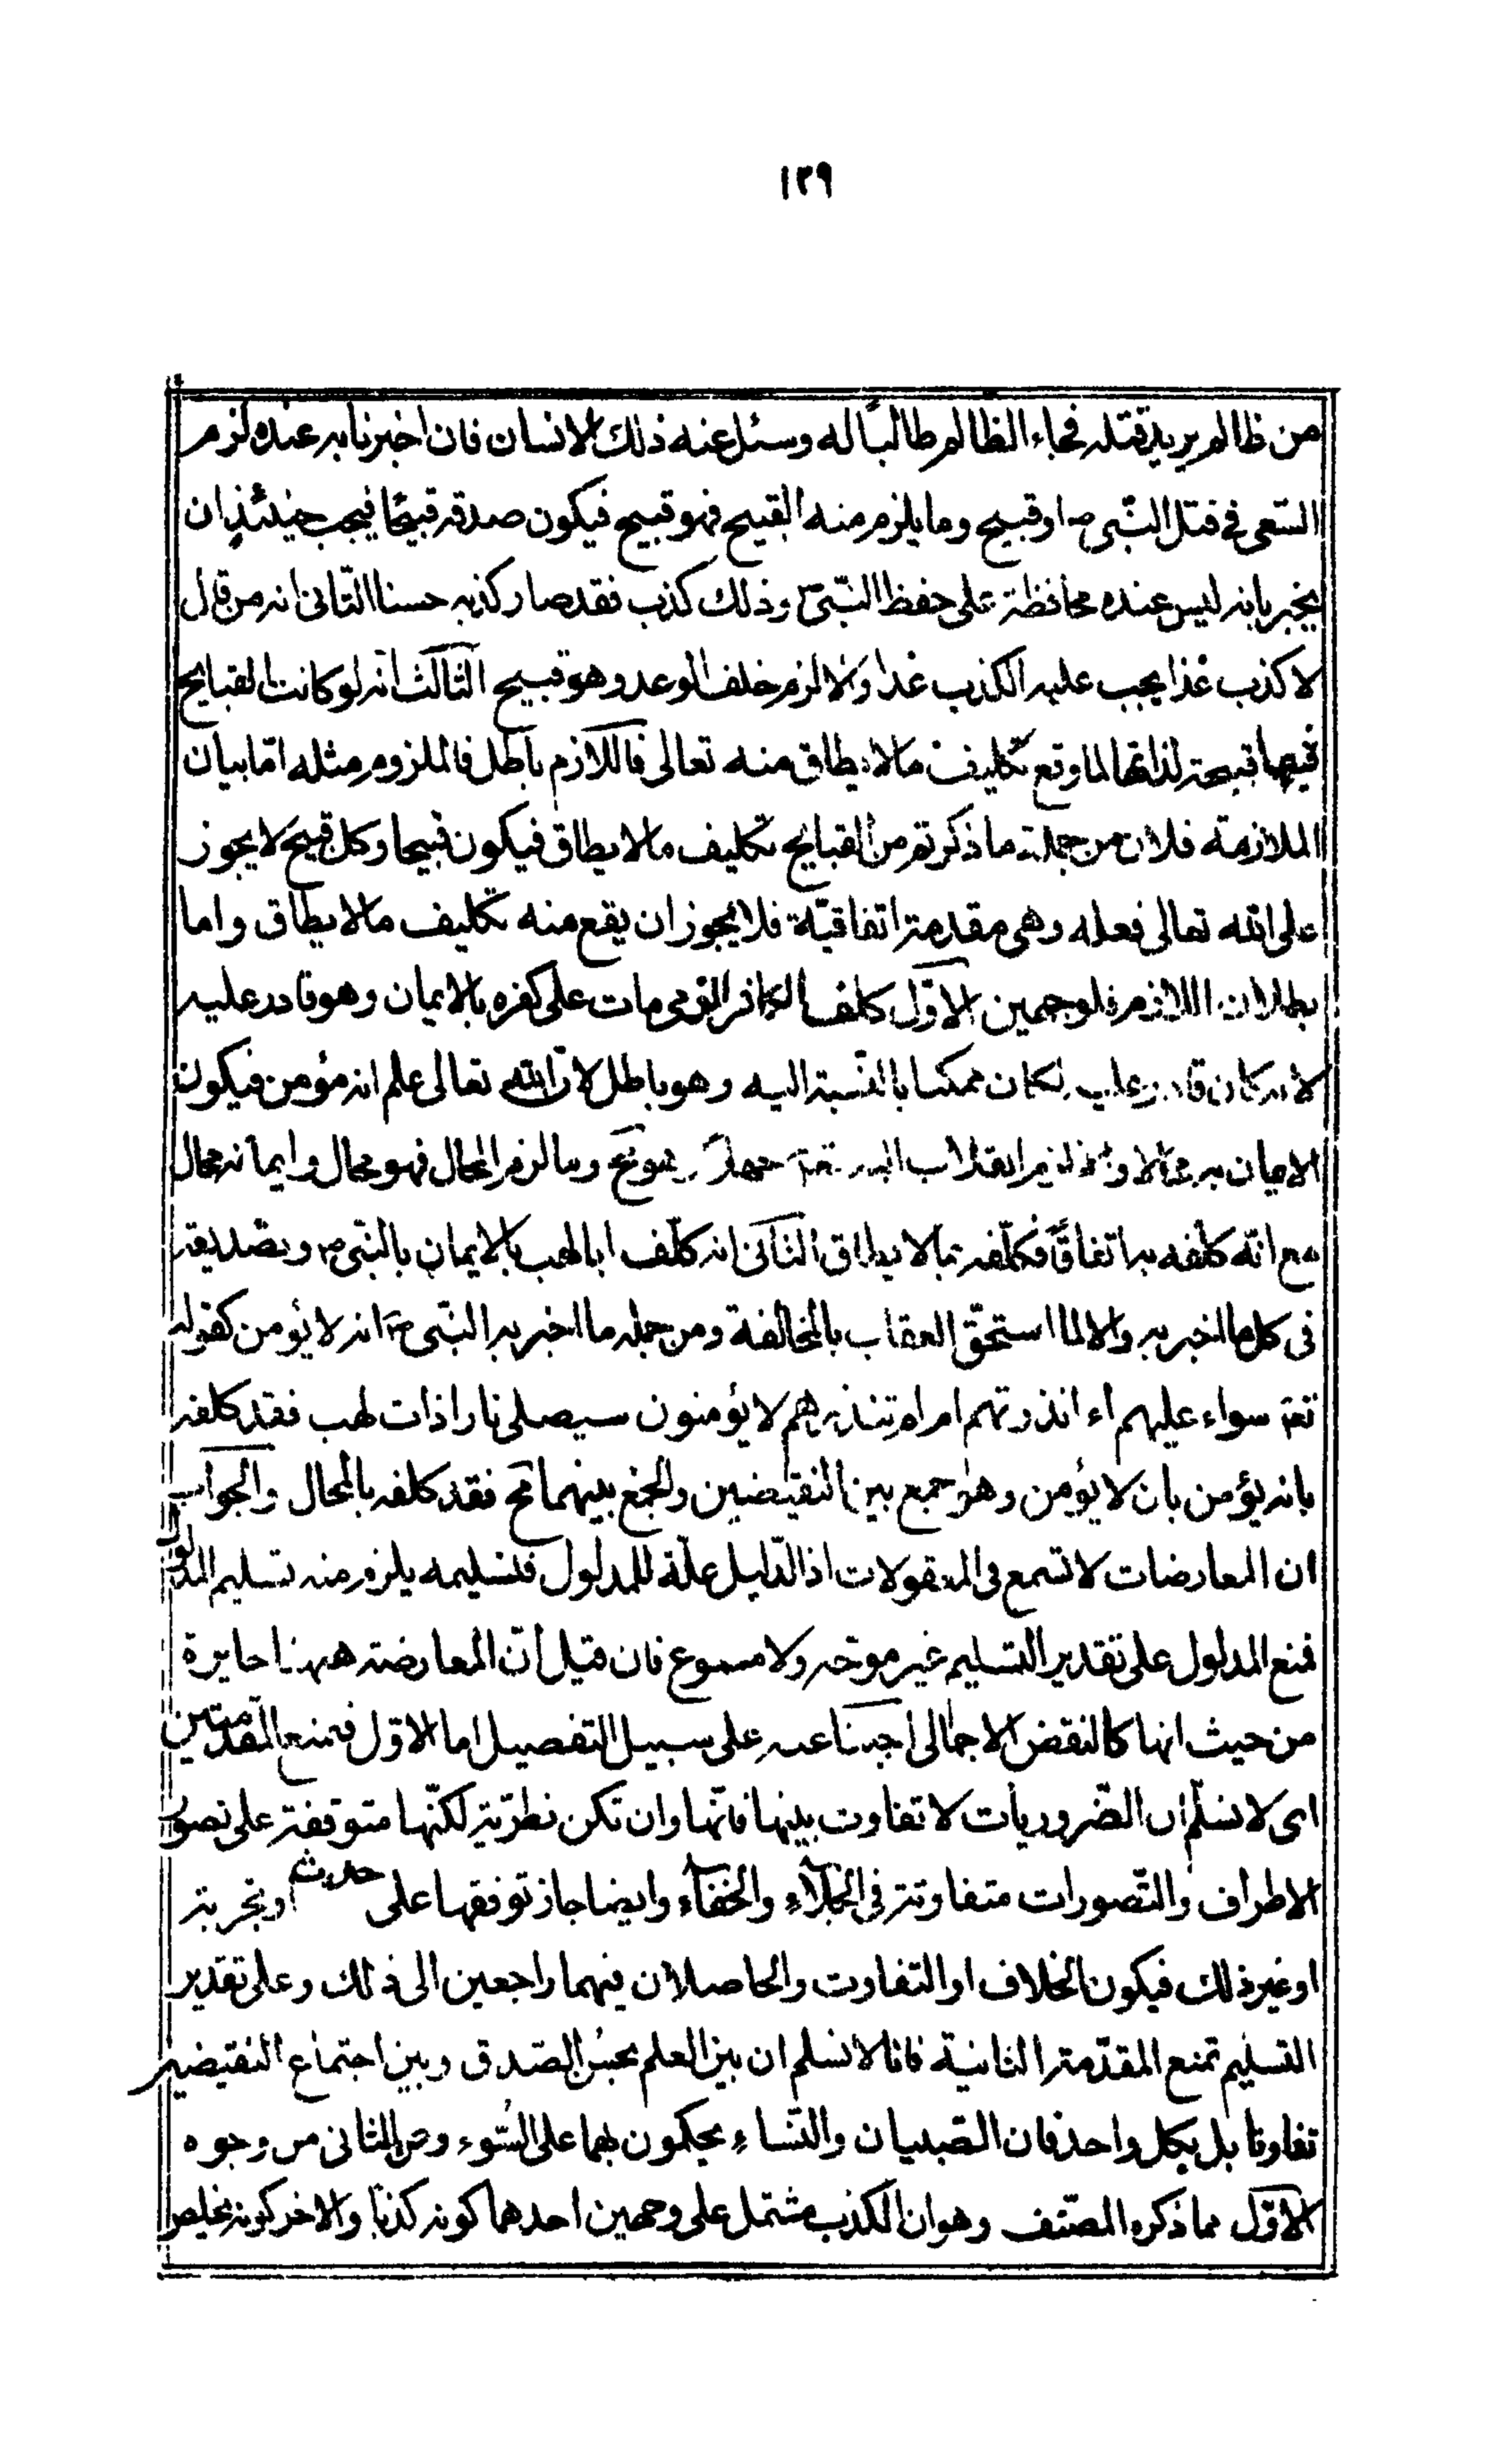 ١٣٩
من ظالم يريد قتله فجاء الظالم طالباً له وسئل عنه ذلك الانسان فان اخبرنا به عنده لزم
السّعى فى قتل النّبى ص اوقبيح وما يلزم منه القبيح فهو قبيح فيكون صدقه قبيحًا فيجب حينئذٍ ان
يخبر بانه ليس عنده محافظة على حفظ النبّى ص وذلك كذب فقد صار كذبه حسنا الثّانى انه من قال
لاكذب غدًا يجب عليه الكذب غدا والا لزم خلف الوعد وهو قبيح الثالث انه لو كانت القبايح
قبيحة لذاتها لما وقع تكليف مالا يطاق منه تعالى فاللازم باطل فالملزوم مثله امّا بيان
الملازمة فلان من جملة ما ذكرتم من القبايح تكليف مالا يطاق فيكون قبيحا وكل قبيح لا يجوز
على الله تعالى فعله وهى مقدمة اتفاقيّة فلا يجوز ان يقع منه تكليف مالا يطاق واما
بطلان اللازم فلوجهين الاوّل كلف الكافر الذى مات على كفره بالايمان وهو قادر عليه
لانه كان قادر عليه لكان ممكنا بالنّسبة اليه وهو باطل لانّ الله تعالى علم انه مؤمن فيكون
الايمان به محالا والا لزم انقلاب علمه تعه جهلا وما لزم المحال فهو محال وايمانه محال
مع انّه كلّفه به اتفاقًا فكلّفه بما لا يطاق الثانى انه كلّف ابا لهب بالايمان بالنّبى ص وبتصديقه
فى كل ما اخبر به والا لما استحقّ العقاب بالمخالفة ومن جمله ما اخبر به النبّى ص انه لا يؤمن كقوله
تعه سواء عليهم اء انذرتهم ام لم تنذرهم لا يؤمنون سيصلى نارا ذات لهب فقد كلفه
بانه يؤمن بان لا يؤمن وهو جمع بين النقيضين والجمع بينهما مح فقد كلفه بالمحال والجواب
ان المعارضات لا تسمع فى المعقولات اذ الدّليل علّة للمدلول فتسليمه يلزم منه تسليم المدلول
فمنع المدلول على تقدير التسليم غير موجّه ولا مسموع فان قيل انّ المعارضة ههنا جايرة
من حيث انها كالنقض الاجمالى اجبنا عنه على سبيل التفصيل اما الاوّل فمنع المقدمتين
اى لا نسلّم ان الضّروريات لا تفاوت بينها فانّها وان تكن نظريّة لكنّها متوقفة على تصور
الاطراف والتّصورات متفاوتة فى الجلاء والخفاء وايضا جاز توقفها على حدث او تجربة
او غير ذلك فيكون الخلاف او التفاوت والحاصلان فيهما راجعين الى ذلك وعلى تقدير
التسليم تمنع المقدّمة الثانية فانا لا نسلم ان بين العلم بحسن الصّدق وبين اجتماع النقيضين
تفاوتا بل بكل واحد فان الصّبيان والنّساء يحكمون بهما على السّوء وعن الثانى من وجوه
الاوّل مما ذكره المصنّف وهو ان الكذب مشتمل على وجهين احدهما كونه كذبًا والاخر كونه تخليص